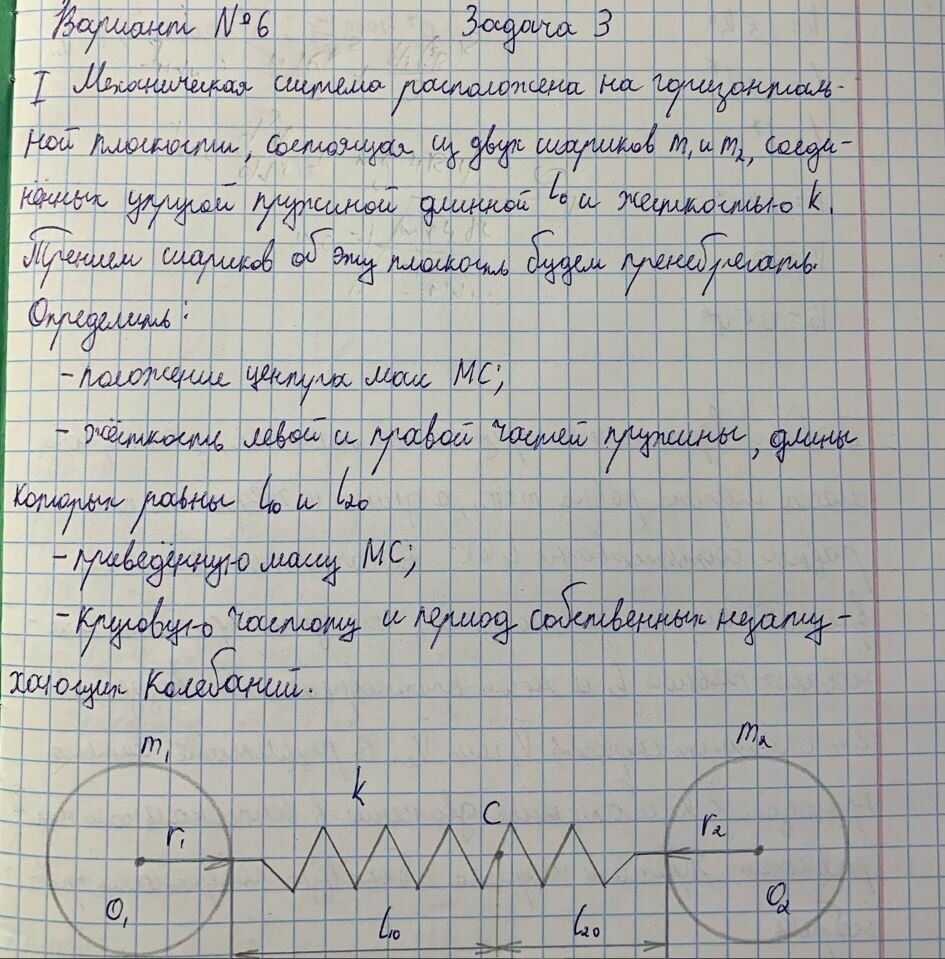 Вариант №6 Задача 3
I Механическая система расположена на горизонталь-
ной плоскости, состоящая из двух шариков m₁ и m₂, соеди-
нённых упругой пружиной длинной l₀ и жёсткостью k.
Трением шариков об эту плоскость будем пренебрегать.
Определить:
- положение центра масс МС;
- жёсткость левой и правой частей пружины, длины
которых равны l₁₀ и l₂₀
- приведённую массу МС;
- Круговую частоту и период собственных незату-
хающих Колебаний.
m₁ m₂
k
C
r₁ r₂
O₁ O₂
l₁₀ l₂₀